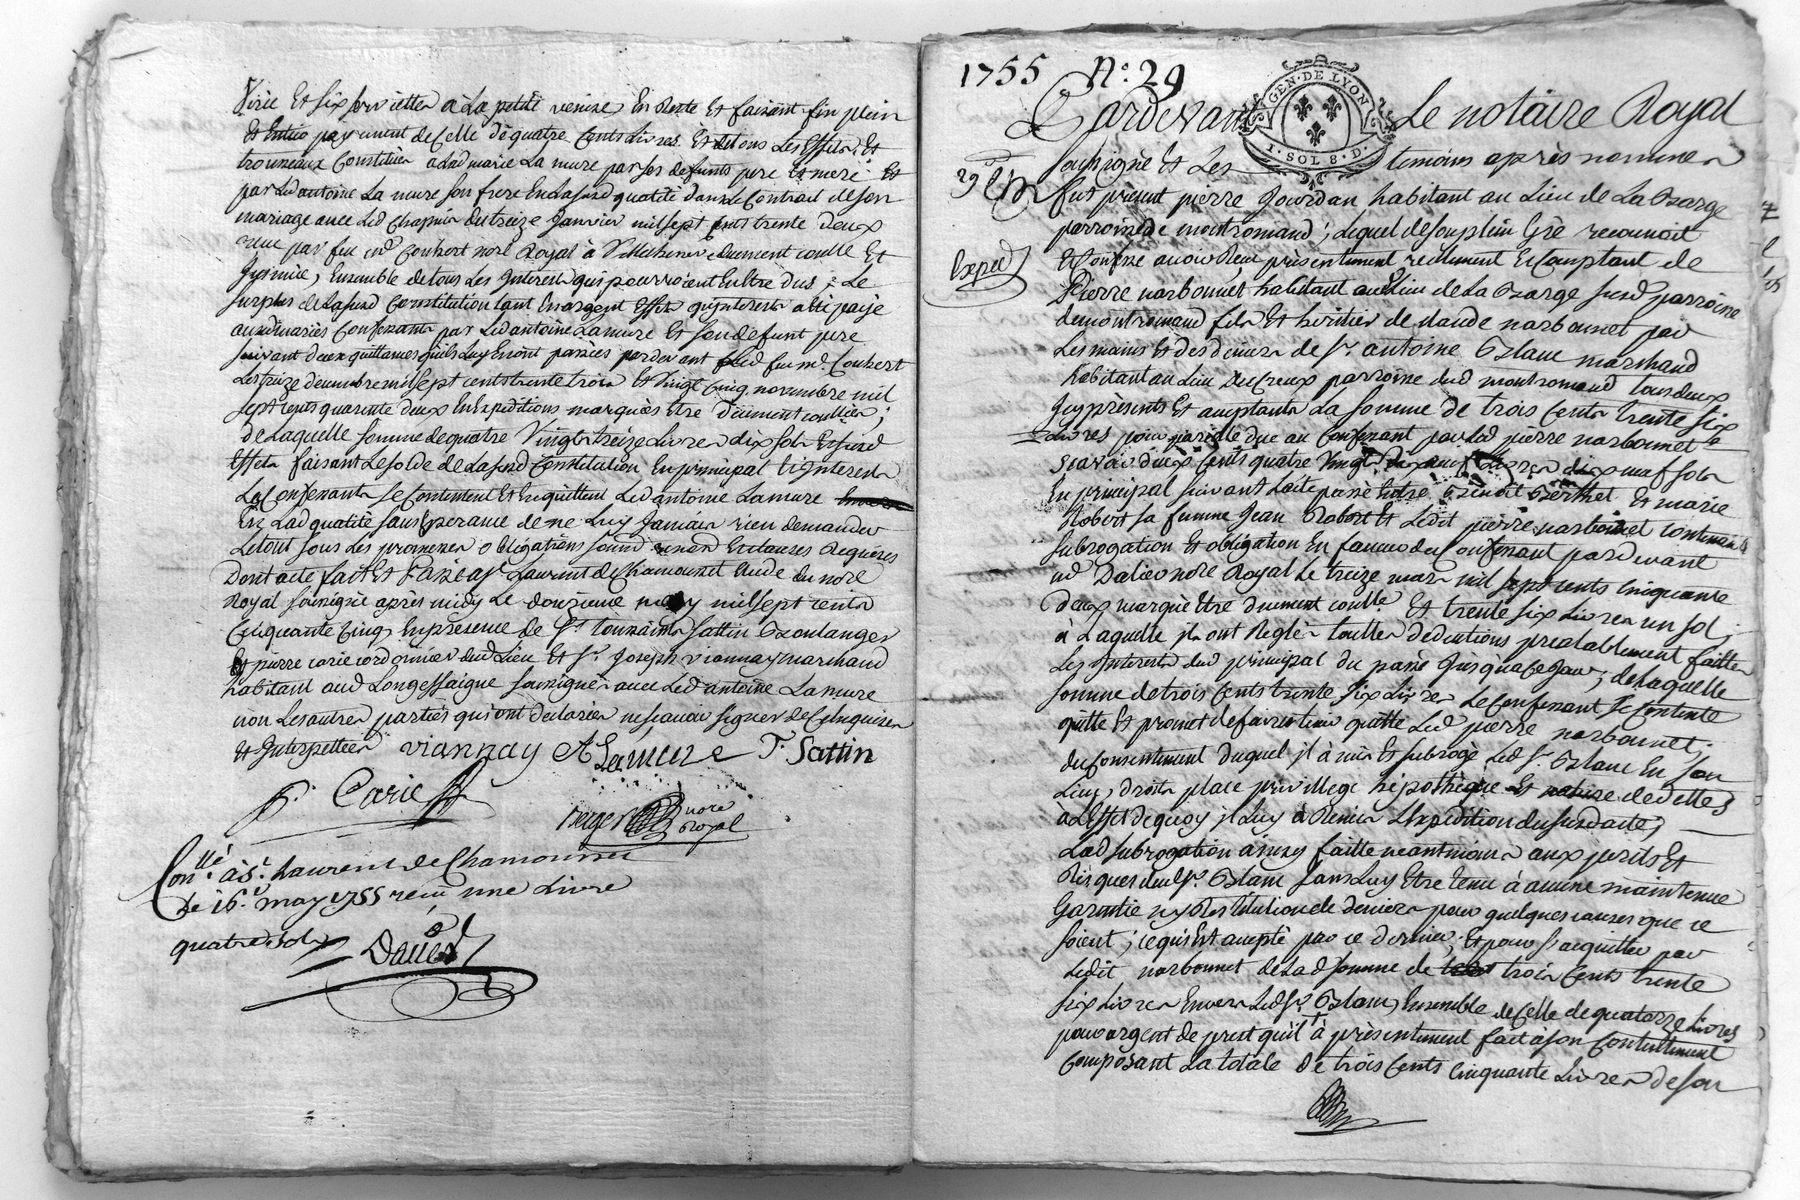 Et six serviettes a La petite venise, En Reste Et faisant fin plein
Et Entier payement de Celle de quatre Cents Livres Et de tous Les Effets Et
trousseaux Constitués a Lad marie La mure par ses defunts pere Et mere Et
par Led antoine La mure son frere En Lasusd qualité dans Le Contrat de son
mariage avec Led Chapuis du treize Janvier mil sept cent trente deux
reçu par feu me Couhert nore Royal à dument Controllé Et
Insinué, Ensemble de tous Les Interets qui pourroient En Etre dus ; Le
surplus de Lasusd Constitution tant En argent Effets qu'interets a Eté payé
auxd mariés Confessants par Led antoine Lamure Et son defunt pere
suivant deux quittances qu'ils Luy En ont passées pardevant Led feu me Couhert
Les treize decembre mil sept cents trente trois Et Vingt Cinq novembre mil
sept cents quarente deux En Expeditions marqués Etre duement Controllées ;
de Laquelle somme de quatre Vingts treize Livres dix sols Et susd
Effets faisant Le solde de Lasusd Constitution En principal Et interets
Les Confessants se Contentent Et En quittent Led antoine Lamure
En Lad qualité sans Esperance de ne Luy Jamais rien demander
Le tout sous Les promesses obligations soumd renon Et clauses Requises
Dont acte fait Et Passé a St Laurent de Chamousset Etude du nore
Royal soussigné après midy Le douzieme may mil sept cents
Cinquante Cinq, En presence de Sr toussaints Sattin Boulanger
Et pierre carie cordonnier dud Lieu Et Sr Joseph viannay marchand
habitant aud Longessaigne soussignés avec Led antoine Lamure
non Les autres parties qui ont declarées ne scavoir signer de Ce Enquises
Et Interpellées viannay A Lamure T. Sattin
P. Carie
nore
Royal
Conllé à St Laurent de Chamousset
Le 16e may 1755 reçu une Livre
quatre sols
1755 N° 29
GEN. DE LYON
1 . SOL 8 . D .
Pardevant Le notaire Royal
soussigné Et Les temoins après nommés
29e
fut présent pierre Jourdan habitant au Lieu de La Barge
parroisse de montromand ; Lequel de son plein Gré reconnoit
Expedé
Et Confesse avoir Reçu présentement reellement Et Comptant de
Pierre narbonnet habitant aud Lieu de La Barge susd parroisse
de montromand fils Et heritier de claude narbonnet par
Les mains Et des deniers de Sr antoine Blanc marchand
habitant au Lieu Du Creux parroisse dud montromand tous deux
Icy présents Et acceptants La somme de trois Cents trente six
Livres pour pareille due au Confessant par Led pierre narbonnet
scavoir deux Cents quatre Vingt dix neuf Livres dix neuf sols
En principal suivant L'acte passé Entre Benoit Berthet Et marie
Robert sa femme Jean Robert Et Ledit pierre narbonnet Contenant
subrogation Et obligation En faveur du Confessant pardevant
nore Royal Le treize mars mil sept cents cinquante
deux marqué Etre duement controllé Et trente six Livres un sol ;
à Laquelle ils ont Reglés toutes deductions prealablement faittes
Les Interets dud principal du passé Jusqu'a Ce Jour ; de Laquelle
somme de trois Cents trente six Livres Le Confessant se Contente
quitte Et promet de faire tenir quitte Led pierre narbonnet ;
du Consentement duquel il à mis Et subrogé Led Sr Blanc En son
Lieu, droits place privillege hépothèque Et nature de dettes
à L'Effet de quoy il Luy à Remis L'Expedition dususd acte ;
Lad subrogation ainsy faitte neantmoins aux perils Et
Risques dud Sr Blanc sans Luy Etre tenu à aucune maintenue
Garantie ny Restitution de deniers pour quelques causes que ce
soient ; ce qui Est accepté par ce dernier ; Et pour s'acquitter par
Ledit narbonnet de Lad somme de trois Cents trente
six Livres Envers Led Sr Blanc, Ensemble de Celle de quatorze Livres
pour argent de prest qu'il à présentement fait à son Contentement
Composant La totale de trois Cents Cinquante Livres De son